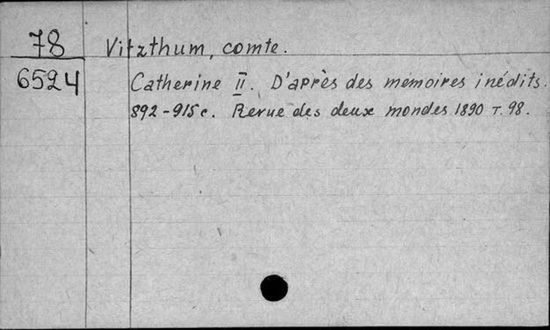 78 Vitzthum, comte.
6524 Catherine II. D'après des memoires inédits.
892-915c. Revue des deux mondes 1890 T. 98.